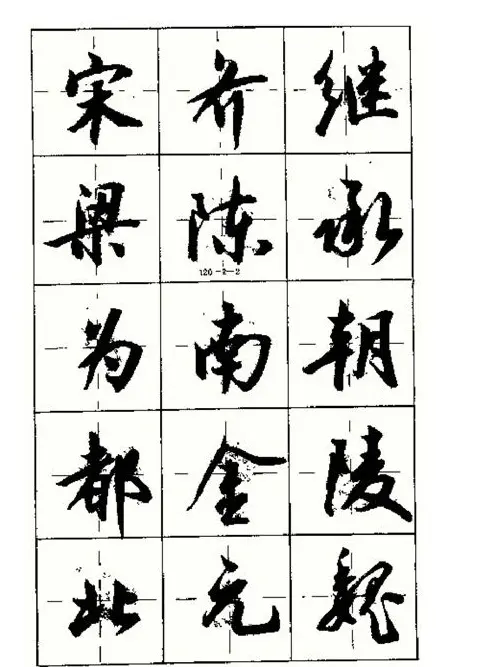 宋齐继
梁陈承
120-2-2
为南朝
都金陵
北元魏